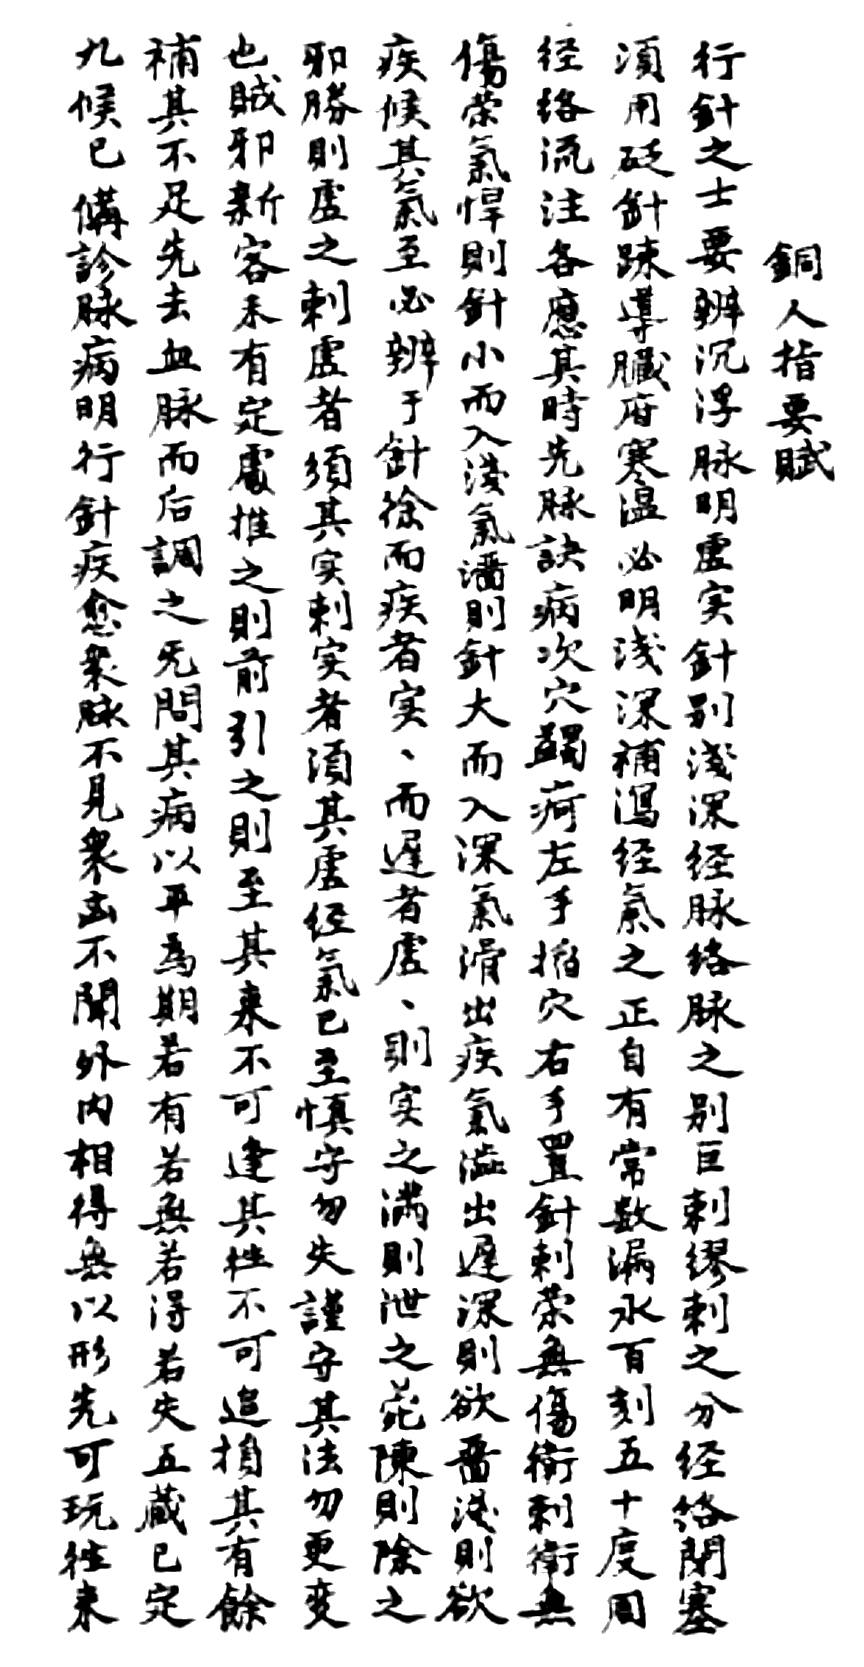 銅人指要賦
行針之士要辨沉浮脉明虚实針别淺深经脉络脉之别巨刺缪刺之分经络閉塞
須用砭針踈導臓府寒温必明浅深補瀉经氣之正自有常数漏水百刻五十度周
经络流注各應其時先脉訣病次穴蠲疴左手掐穴右手置針刺荣無傷衛刺衛無
傷荣氣悍則針小而入淺氣濇則針大而入深氣滑出疾氣澁出遲深則欲留淺則欲
疾候其氣至必辨于針徐而疾者实、而遲者虚、則实之满則泄之菀陳則除之
邪勝則虚之刺虚者須其实刺实者須其虚经氣已至慎守勿失謹守其法勿更変
也賊邪新客未有定處推之則前引之則至其来不可逢其徃不可追損其有餘
補其不足先去血脉而后調之旡問其病以平為期若有若無若得若失五蔵已定
九候已備診脉病明行針疾愈衆脉不見衆凶不聞外内相得無以形先可玩徃来